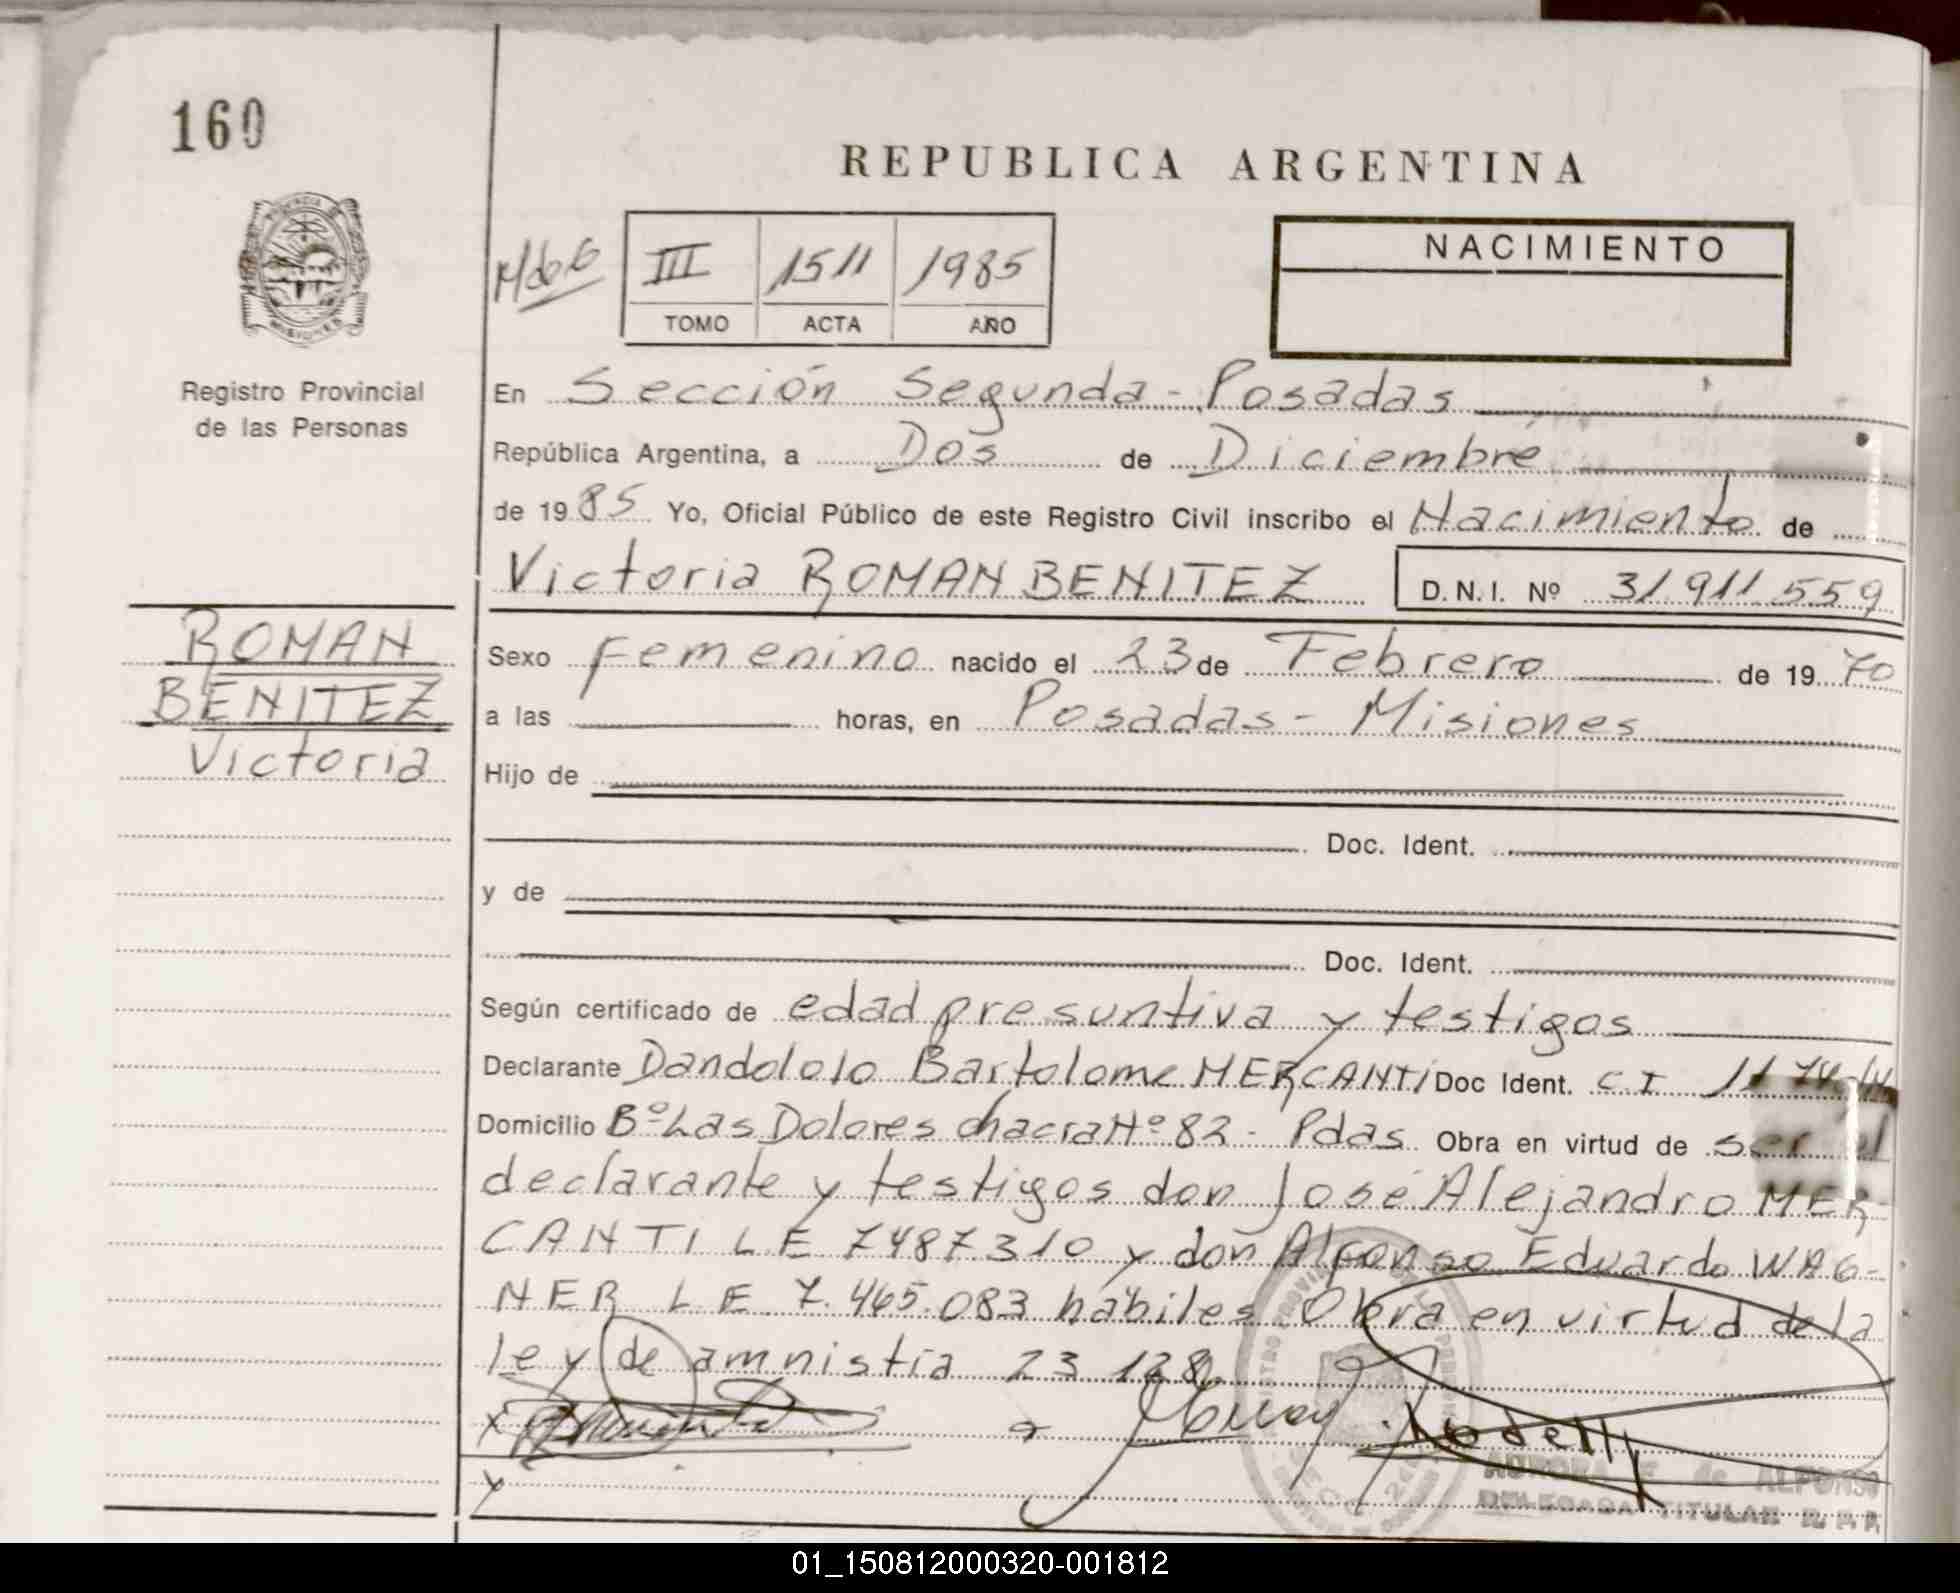 160
REPUBLICA ARGENTINA
NACIMIENTO
III 1511 1985
TOMO ACTA AÑO
Registro Provincial
de las Personas
En Sección Segunda - Posadas
República Argentina, a Dos de Diciembre
de 1985 Yo, Oficial Público de este Registro Civil inscribo el Nacimiento de
Victoria ROMAN BENITEZ D.N.I. Nº 31.911.559
ROMAN
BENITEZ
Victoria
Sexo femenino nacido el 23 de Febrero de 1970
a las horas, en Posadas - Misiones
Hijo de
Doc. Ident.
y de
Doc. Ident.
Según certificado de edad presuntiva y testigos
Declarante Dandololo Bartolome MERCANTI Doc Ident. C.I
Domicilio Bº Las Dolores chacra Nº 82 - Pdas Obra en virtud de ser el
declarante y testigos don José Alejandro MER-
CANTI L E 7487.310 y don Alfonso Eduardo WAG-
NER L E 7.465.083 hábiles Obra en virtud de la
ley de amnistia 23 128
DELEGADA TITULAR R. P. P.
01_150812000320-001812